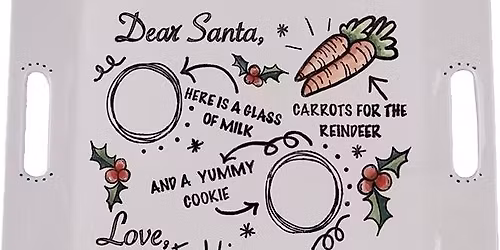 Dear Santa,
HERE IS A GLASS
OF MILK
CARROTS FOR THE
REINDEER
AND A YUMMY
COOKIE
Love,